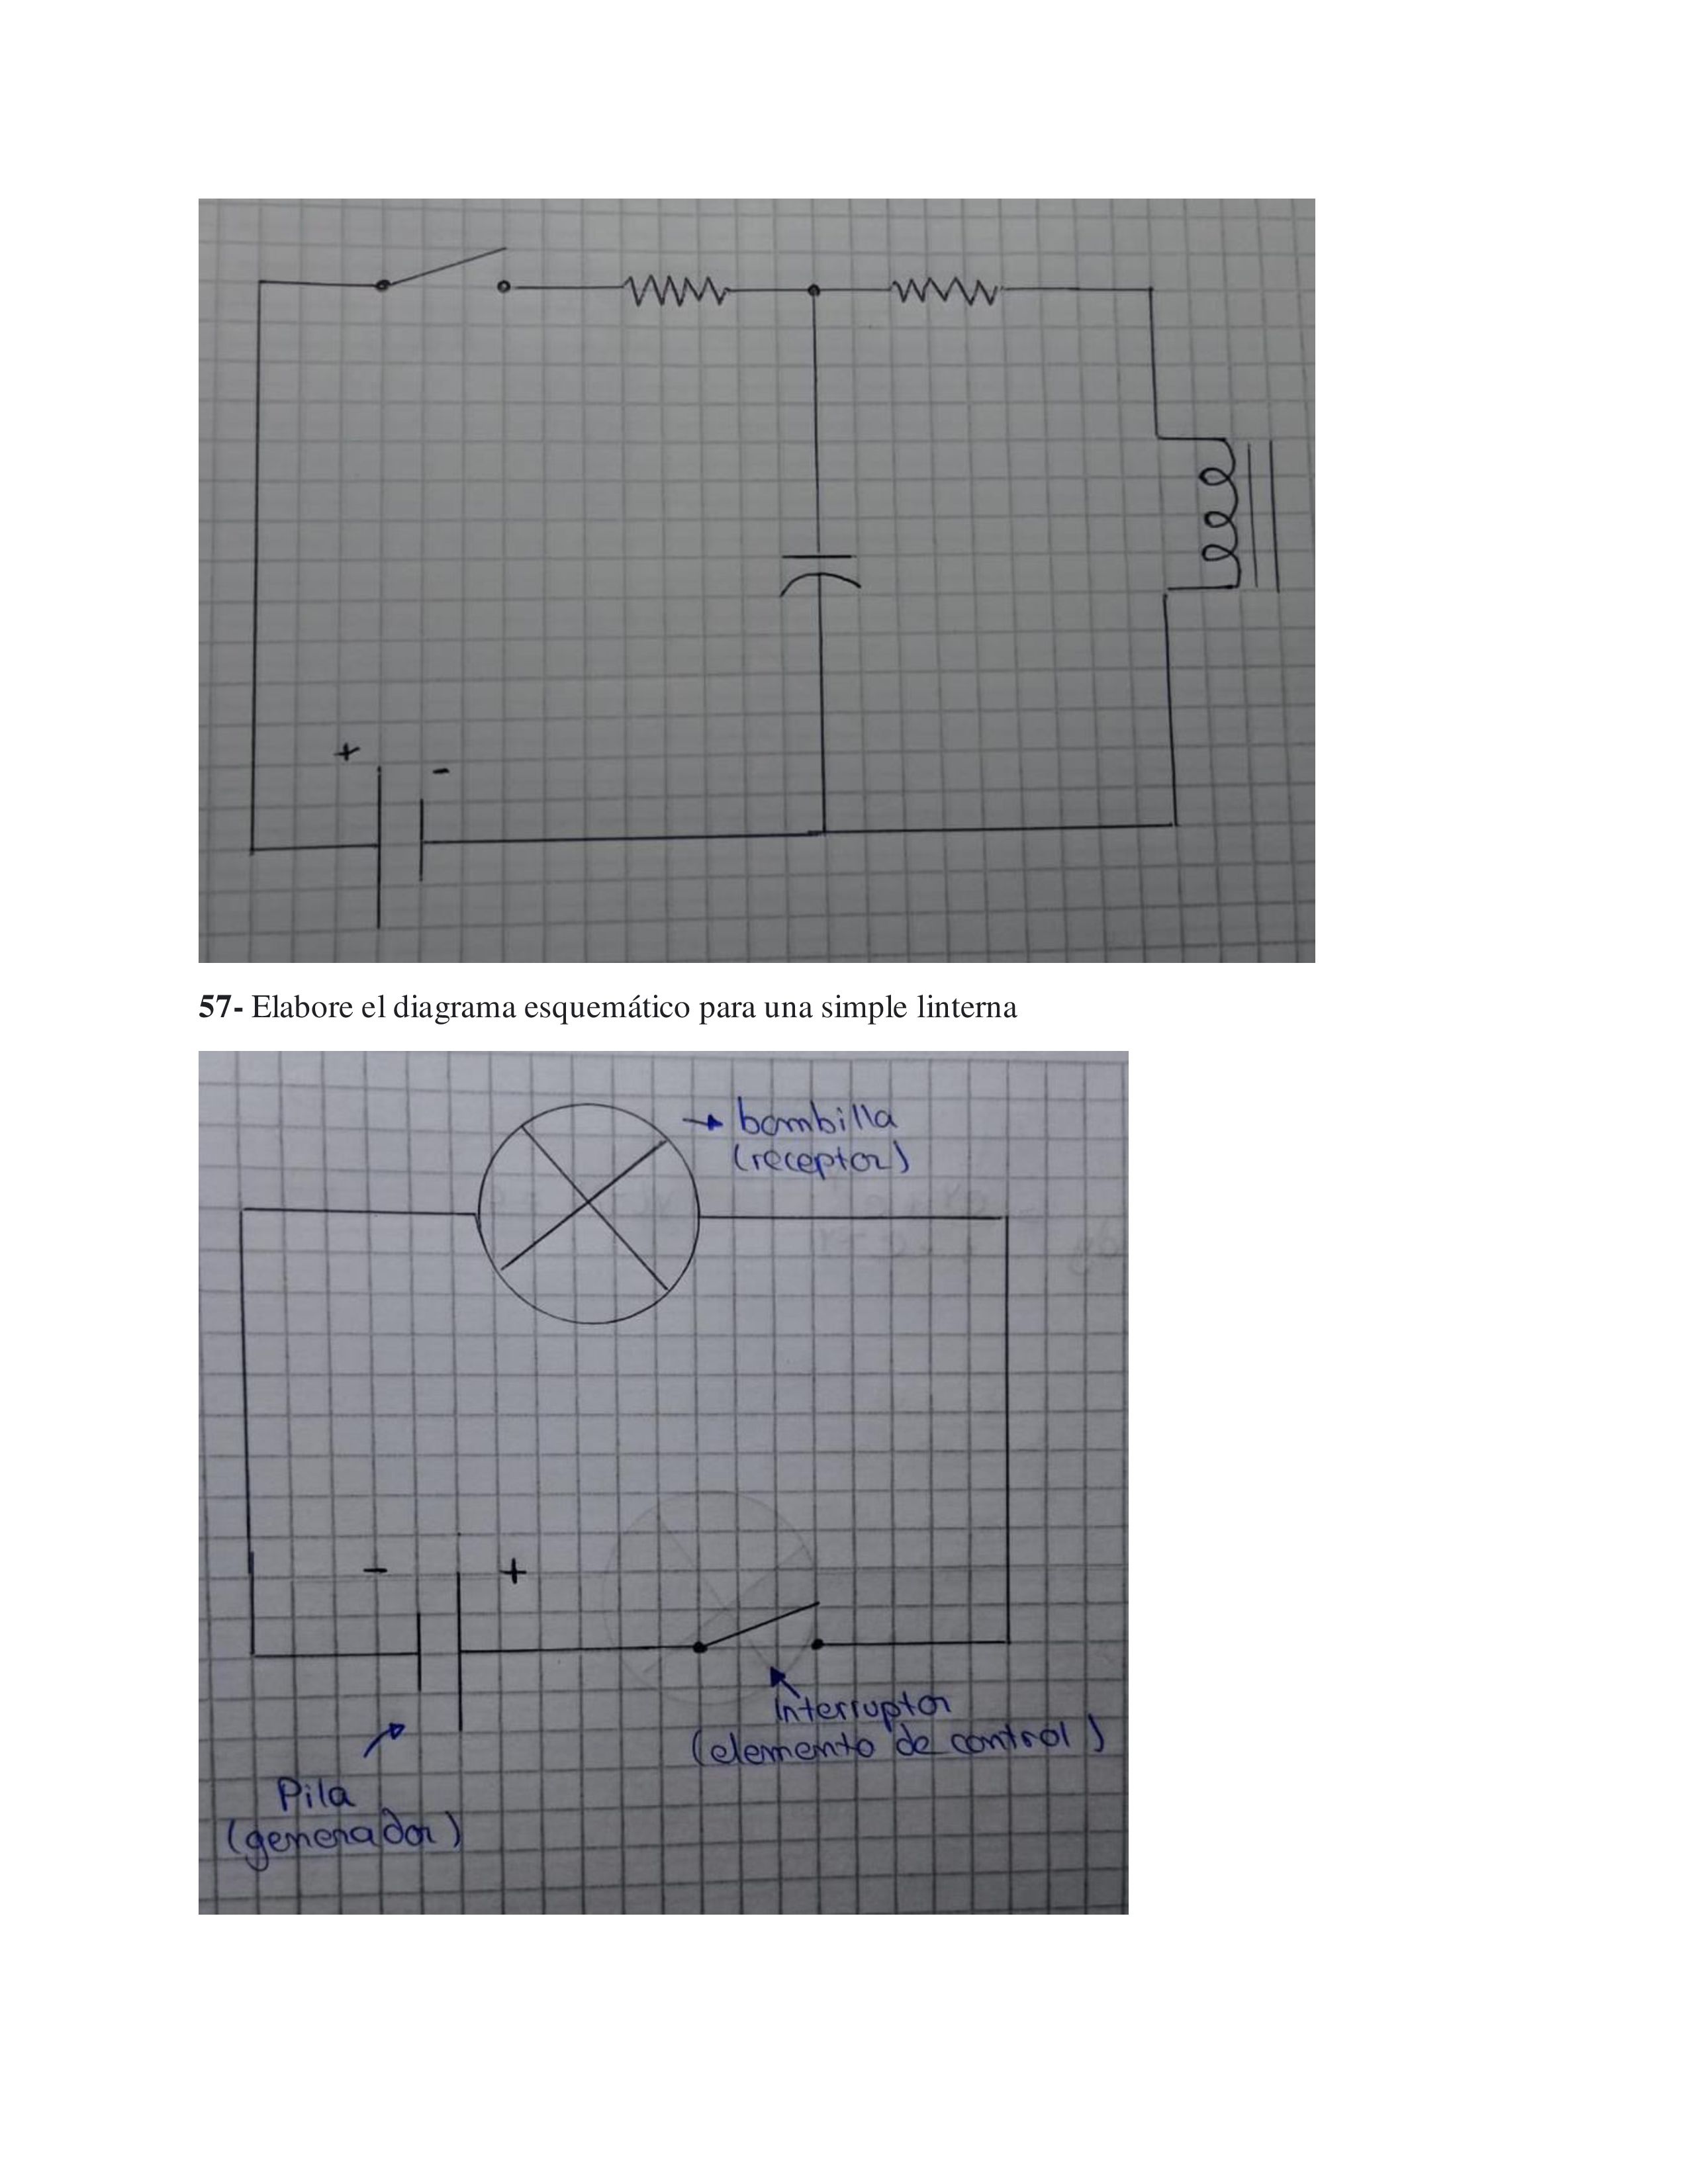 + -
57- Elabore el diagrama esquemático para una simple linterna
→ bombilla
(receptor)
- +
Interruptor
(elemento de control)
Pila
(generador)